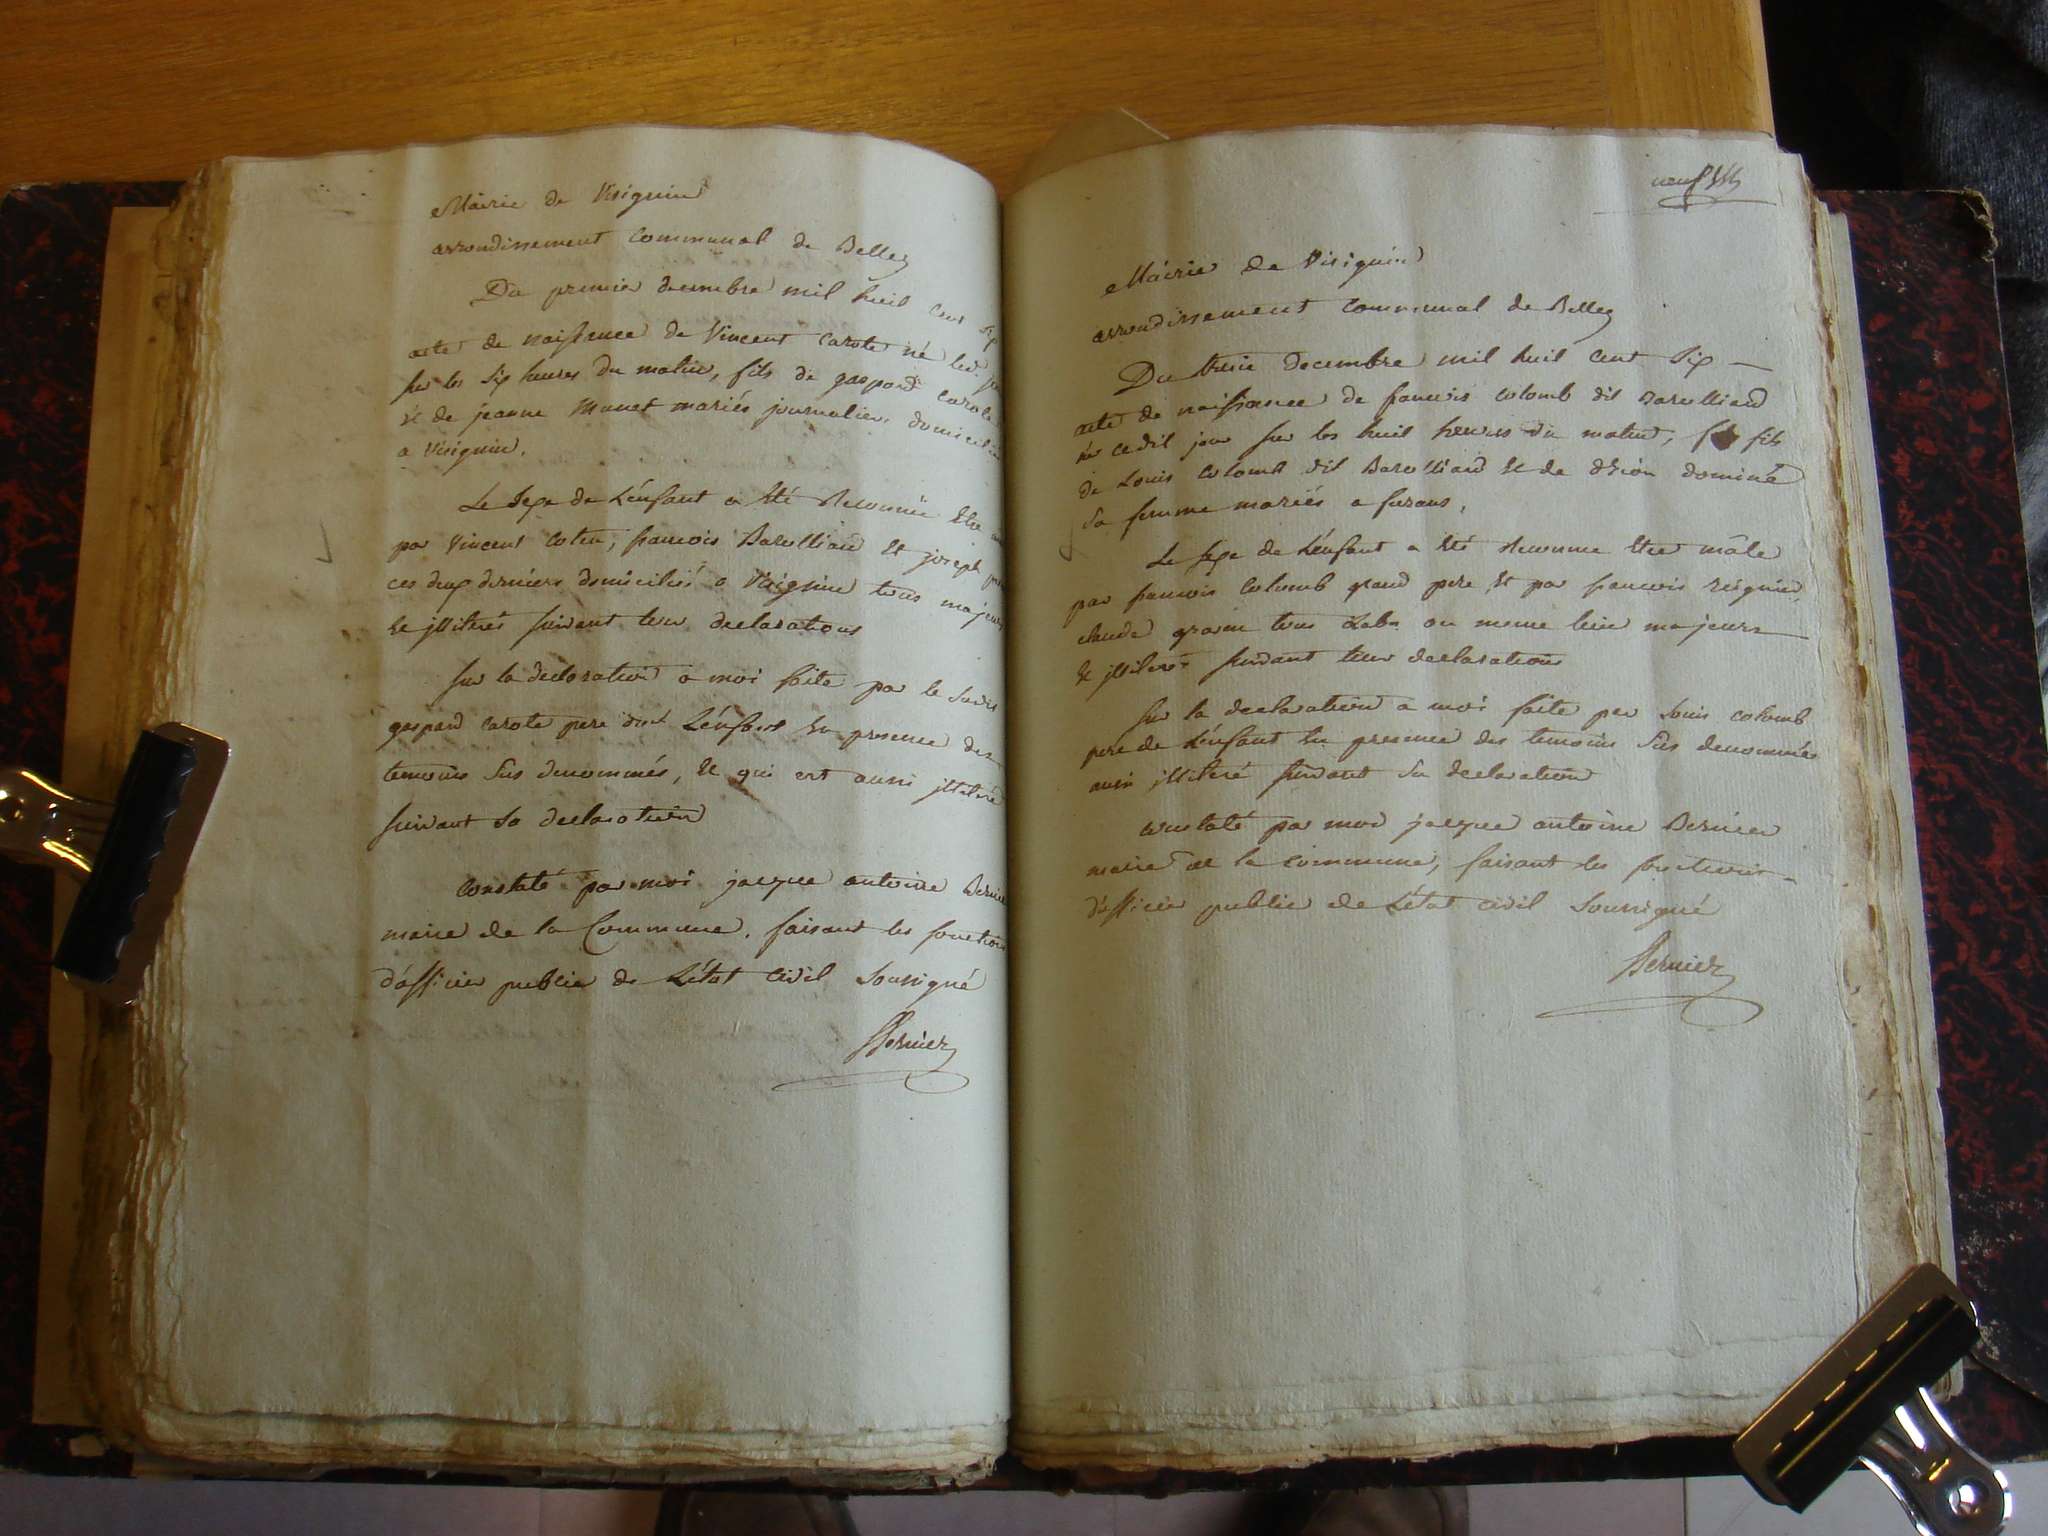 Mairie de Virignin
arrondissement Communal de Belley
Du premier decembre mil huit cent Six
acte de naissance de Vincent Carote né led.
sur les Six heures du matin, fils de gaspard Carote
et de jeanne Monet mariés journaliers domicilié
a Virignin.
Le Sexe de L'énfant a été Reconnüe Etre
par Vincent Cotin, francois Barolliard et joseph
ces deux derniers domiciliés a Virignin tous majeurs
et illiterés suivant leur declarations
sur la declaration a moi faite par le Sudit
gaspard Carote pere dud.t L'énfant En presence des
temoins Sus denommés, et qui est aussi illiteré
suivant Sa declaration
Constaté par moi jacque antoine Bernier
maire de la Commune, faisant les fonctions
d'officier public de L'état Civil Soussigné
Bernier
neuf
Mairie de Virignin
arrondissement Communal de Belley
Du treize decembre mil huit cent Six
acte de naissance de francois Colomb dit Barolliard
né cedit jour sur les huit heures du matin, fils
de Louis Colomb dit Barolliard et de dominé
sa femme mariés a furans,
Le Sexe de L'énfant a été Reconnue Etre mâle
par francois Colomb grand pere et par francois reignier,
claude tous au meme lieu majeurs
et illiterés suivant leur declarations
sur la declaration a moi faite par Louis Colomb
pere de L'énfant En presence des temoins Sus denommés
aussi illiteré suivant Sa declaration
Constaté par moi jacque antoine Bernier
maire de la commune, faisant les fonctions
d'officier public de L'état Civil Soussigné
Bernier